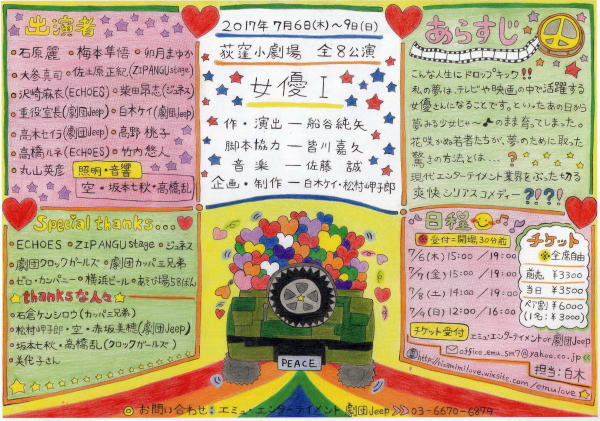 出演者
・石原麗 ・梅本隼悟 ・卯月まゆか
・大參真司 ・佐土原正紀(ZIPANGU stage)
・沢崎麻衣(ECHOES) ・柴田昂志(ジュネス)
・重役室長(劇団Jeep) ・白木ケイ(劇団Jeep)
・高木七行(劇団Jeep) ・高野桃子
・高橋ルネ(ECHOES) ・竹内悠人
・丸山英彦
照明・音響
空・坂本七秋・高橋乱
2017年7月6日(木)〜9日(日)
荻窪小劇場 全8公演
女優Ⅰ
作・演出ー船谷純矢
脚本協力ー皆川嘉久
音楽ー佐藤誠
企画・制作ー白木ケイ・松村岬子郎
あらすじ
こんな人生にドロップキック!!
私の夢は、テレビや映画の中で活躍する
女優さんになることです。といったあの日から
夢みる少じゃ〜のまま育ってしまった。
花咲かぬ若者たちが、夢のために取った
驚きの方法とは...?
現代エンターテイメント業界をぶった切る
爽快シリアスコメディー?!?!
Special thanks...
・ECHOES ・ZIPANGU stage ・ジュネス
・劇団クロックガールズ ・劇団カッパ三兄弟
・ゼロ・カンパニー ・横浜ビール ・あそび場58ばん
thanksな人々
・石倉ケンシロウ(カッパ三兄弟)
・松村岬子郎・空・赤坂美穂(劇団Jeep)
・坂本七秋・高橋乱(クロックガールズ)
・美伦子さん
PEACE
日程
受付=開場30分前
7/6(木)15:00/19:00
7/7(金)15:00/19:00
7/8(土)14:00/19:00
7/9(日)12:00/16:00
チケット
全席自由
前売 ¥3300
当日 ¥3500
ペア割 ¥6000
(1名:¥3000)
チケット受付
エミュ・エンターテイメント or 劇団Jeep
office_emu_sm7@yahoo.co.jp
http://hisamimilove.wixsite.com/emulove
担当:白木
お問い合わせ:エミュ・エンターテイメント 劇団Jeep 03-6670-6879